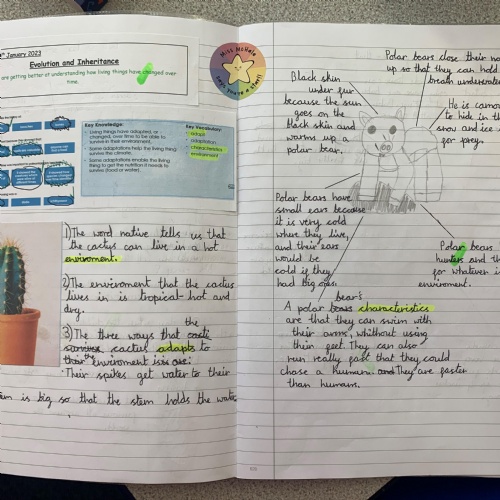 January 2023
Evolution and Inheritance
are getting better at understanding how living things have changed over
time.
Key Knowledge:
Living things have adapted, or
changed, over time be able to survive
in their environment.
Some adaptations help the living thing
survive the climate.
Some adaptations enable the living
thing to get the nutrition it needs to
survive (food or water).
Key Vocabulary:
adapt
adaptation
characteristics
environment
1) The word native tells us that
the cactus can live in a hot
enviroment.
2) The enviroment that the cactus
lives in is tropical - hot and
dry.
the
3) The three ways that
cactus adapts to
the enviroment
Their spikes get water to their
is big so that the stem holds the water
Miss McHale
says you're a star!
Polar bears close their no
up so that they can hold
breath underwater
Black skin
under fur
because the sun
goes on the
black skin and
warms up a
polar bear.
He is camo
to hide in th
snow and ice
for prey.
Polar bears have
small ears because
it is very cold
where they live,
and their ears
would be
cold if they
had big ones.
Polar bears
hunters and th
for whatever i
enviroment.
bear's
A polar bears characteristics
are that they can swim with
their arms, whithout using
their feet. They can also
run really fast that they could
chase a human. and They are faster
than humans.